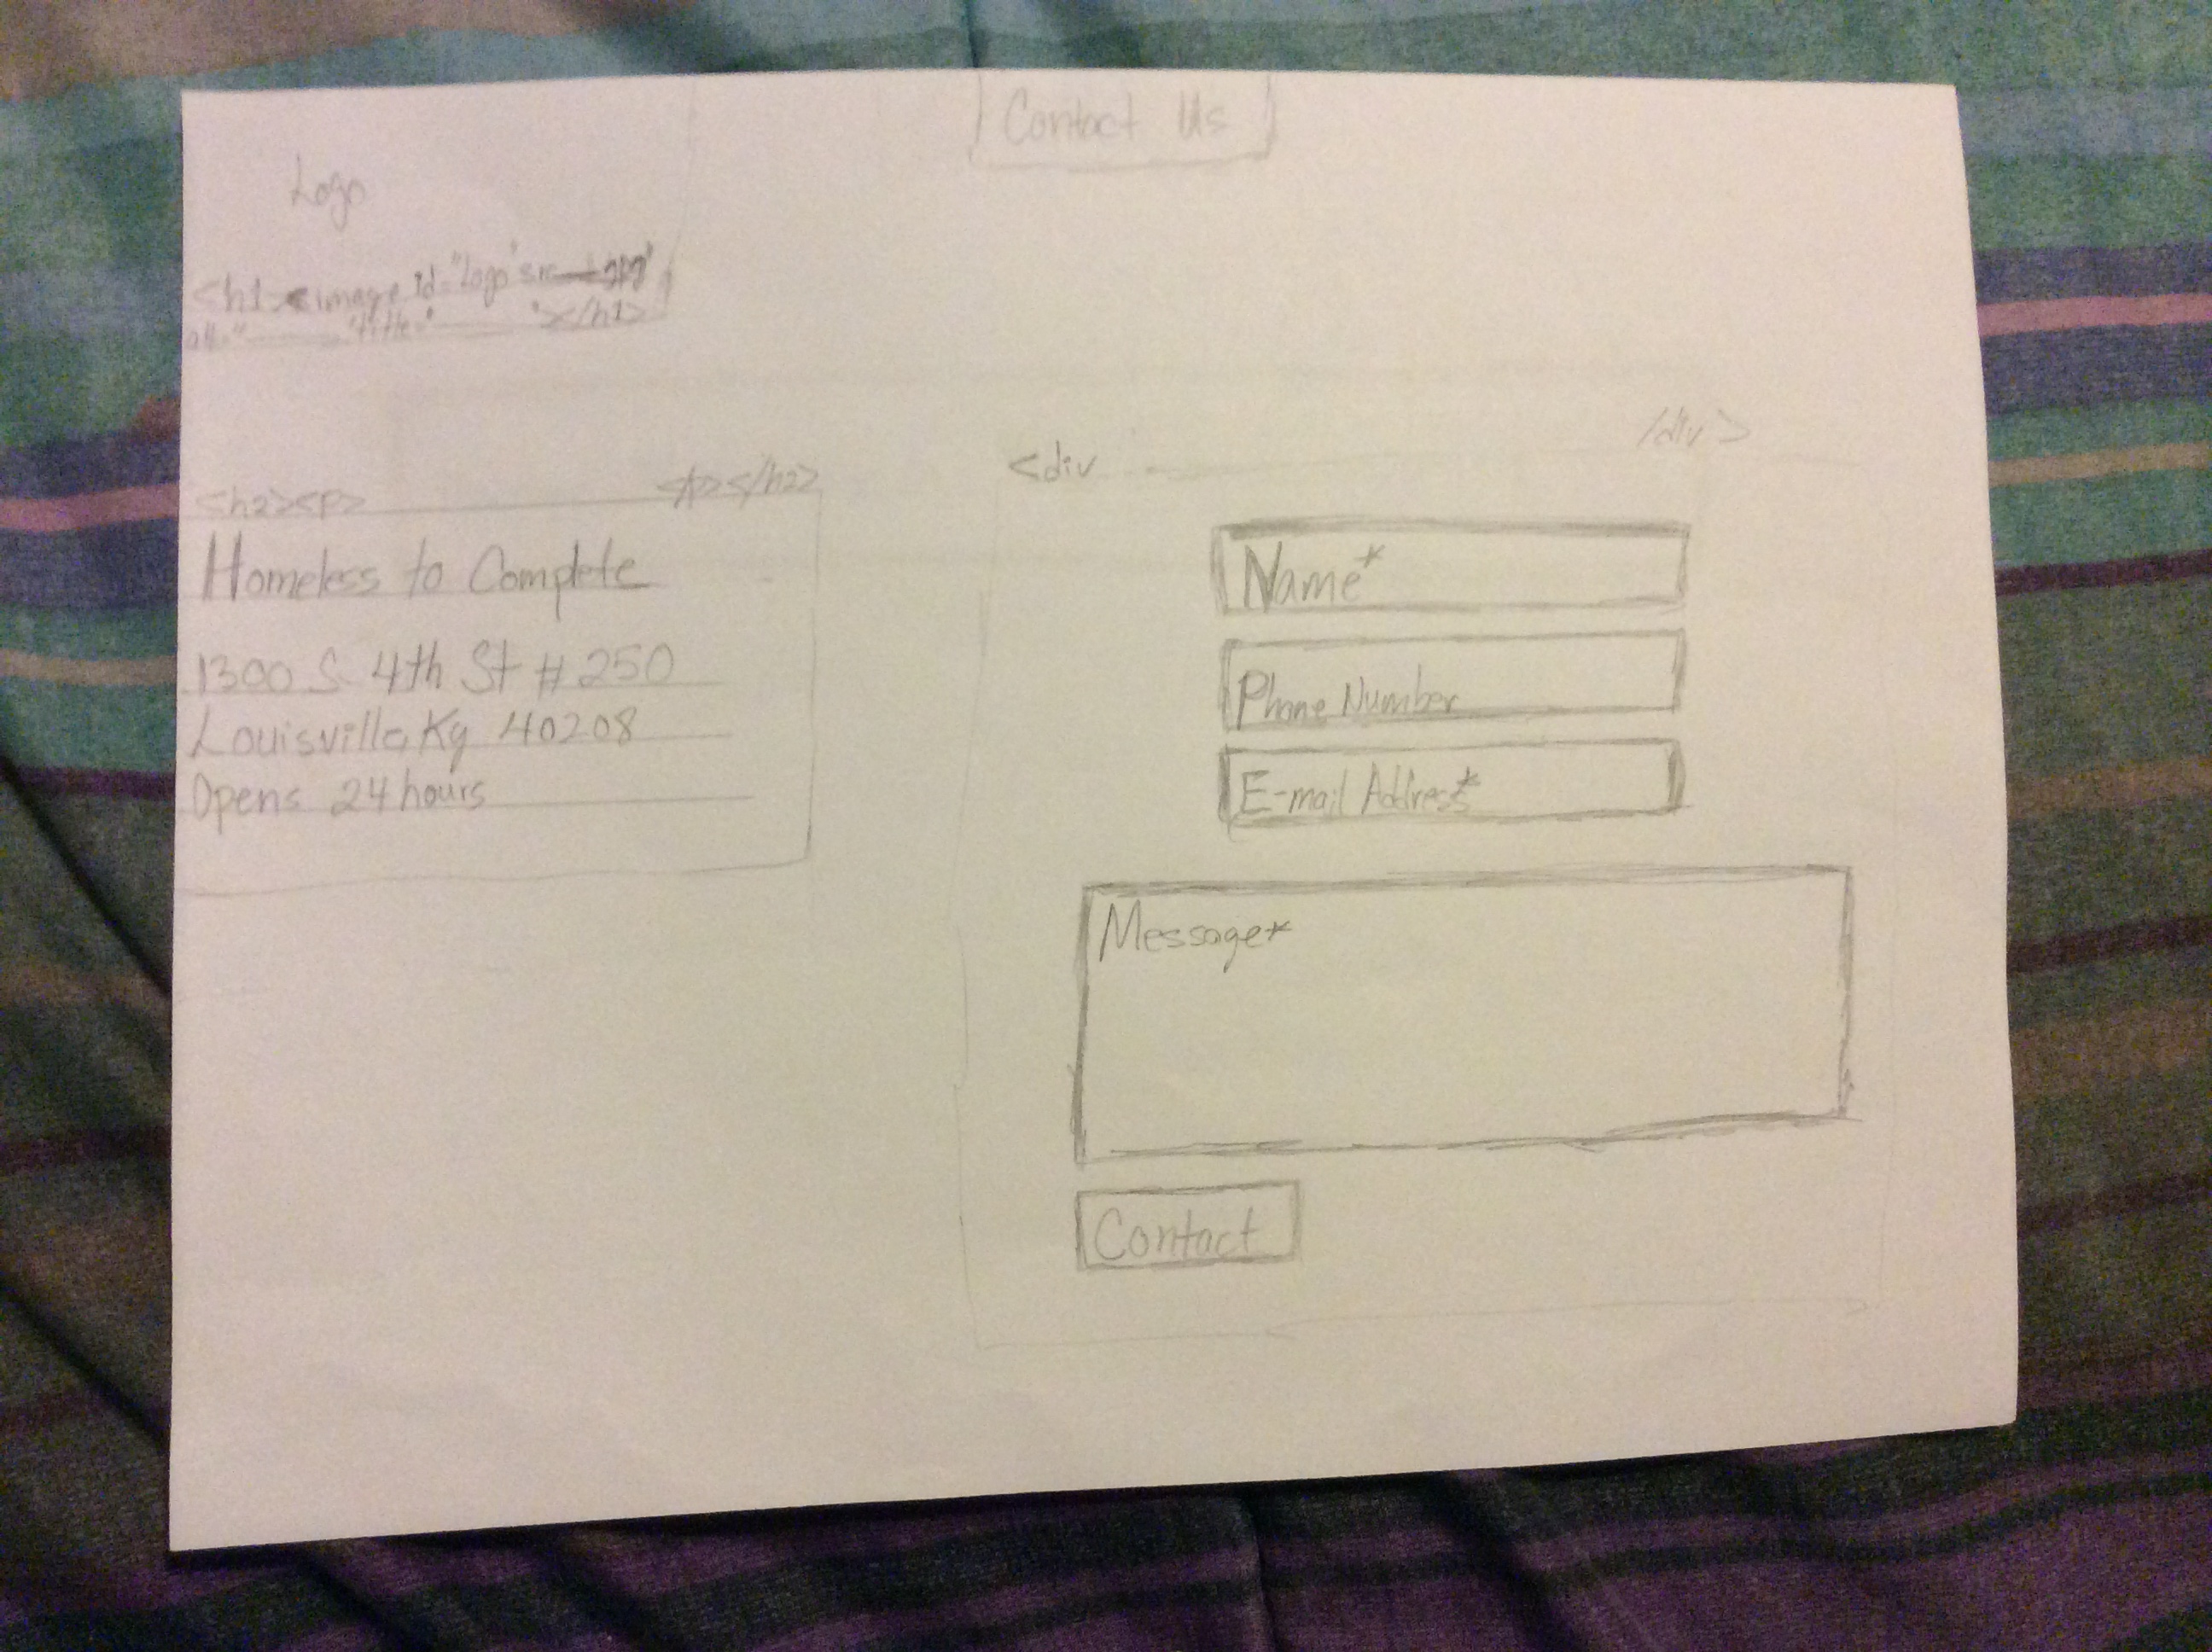 Contact Us
Logo
<h1><image id="Logo" src
alt=" title=" "></h1>
<div /div>
<h2><p> </p></h2>
Homeless to Complete
1300 S 4th St # 250
Louisville, Ky 40208
Opens 24 hours
Name*
Phone Number
E-mail Address*
Message*
Contact